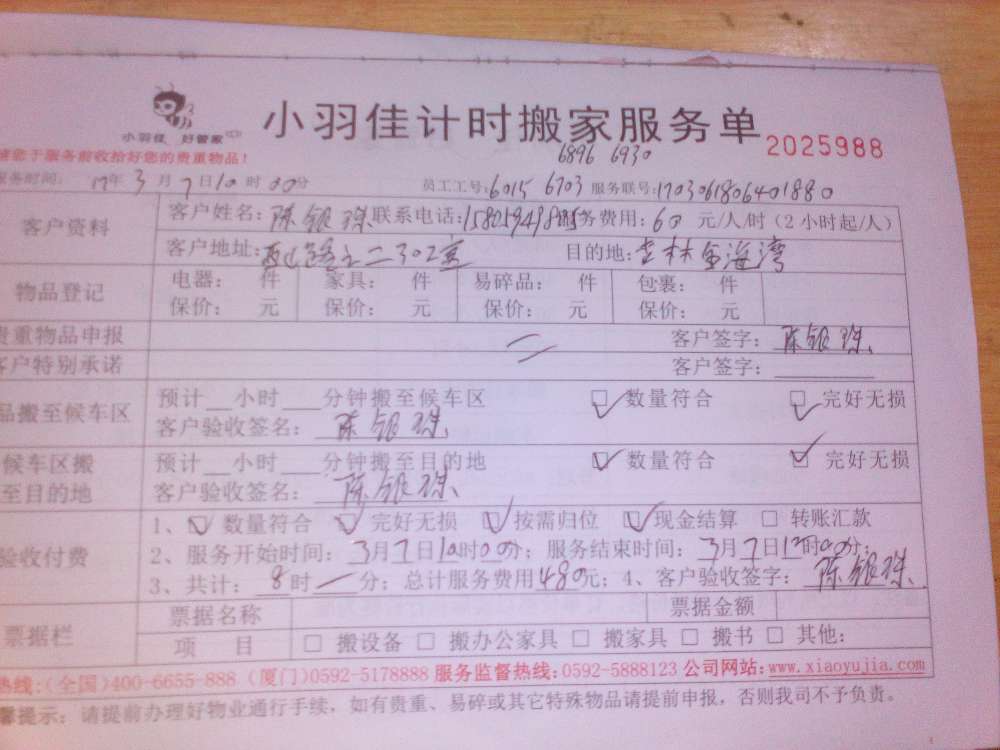 小羽佳 好管家
小羽佳计时搬家服务单 2025988
您于服务前收拾好您的贵重物品!
6896 6930
服务时间: 17年3月7日10时00分 员工工号:6015 6703 服务联号:1703061806401880
客户资料 客户姓名:陈银珠 联系电话: 务费用:60元/人/时(2小时起/人)
客户地址: 二302室 目的地:杏林金海湾
物品登记 电器: 件 家具: 件 易碎品: 件 包裹: 件
保价: 元 保价: 元 保价: 元 保价: 元
贵重物品申报 客户签字:陈银珠
客户特别承诺 客户签字:
品搬至候车区 预计__小时___分钟搬至候车区 ☑数量符合 ☑完好无损
客户验收签名:陈银珠
候车区搬 预计__小时___分钟搬至目的地 ☑数量符合 ☑完好无损
至目的地 客户验收签名:陈银珠
1、☑数量符合 ☑完好无损 ☑按需归位 ☑现金结算 □转账汇款
验收付费 2、服务开始时间:3月7日10时00分;服务结束时间:3月7日12时00分;
3、共计:8时一分;总计服务费用480元;4、客户验收签字:陈银珠
票据名称 票据金额
票据栏 项 目 □搬设备 □搬办公家具 □搬家具 □搬书 □其他:
热线:(全国)400-6655-888 (厦门)0592-5178888 服务监督热线:0592-5888123 公司网站:www.xiaoyujia.com
馨提示:请提前办理好物业通行手续,如有贵重、易碎或其它特殊物品请提前申报,否则我司不予负责。